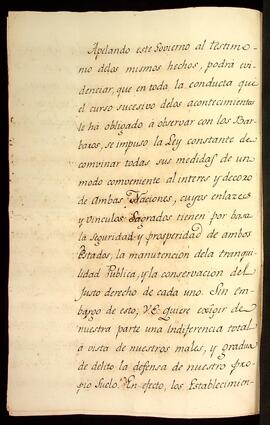 Apelando este Govierno al testimo-
nio delos mismos hechos, podrá evi-
denciar, que en toda la conducta que
el curso sucesivo delos acontecimientos
le há obligado á observar con los Bar-
baros, se impuso la Ley constante de
convinar todas sus medidas de un
modo conveniente al interes y decoro
de Ambas Naciones, cuyos enlazes
y vinculos Sagrados tienen por basa
la seguridad y prosperidad de ambos
Estados, la manutencion dela tranqui-
lidad Publica, y la conservacion del
Justo derecho de cada uno. Sin em-
bargo de esto, V.E. quiere exigir de
nuestra parte una Indiferencia total
á vista de nuestros males, y gradua
de delito la defensa de nuestro pro-
pio Suelo. En efecto, los Establecimien-